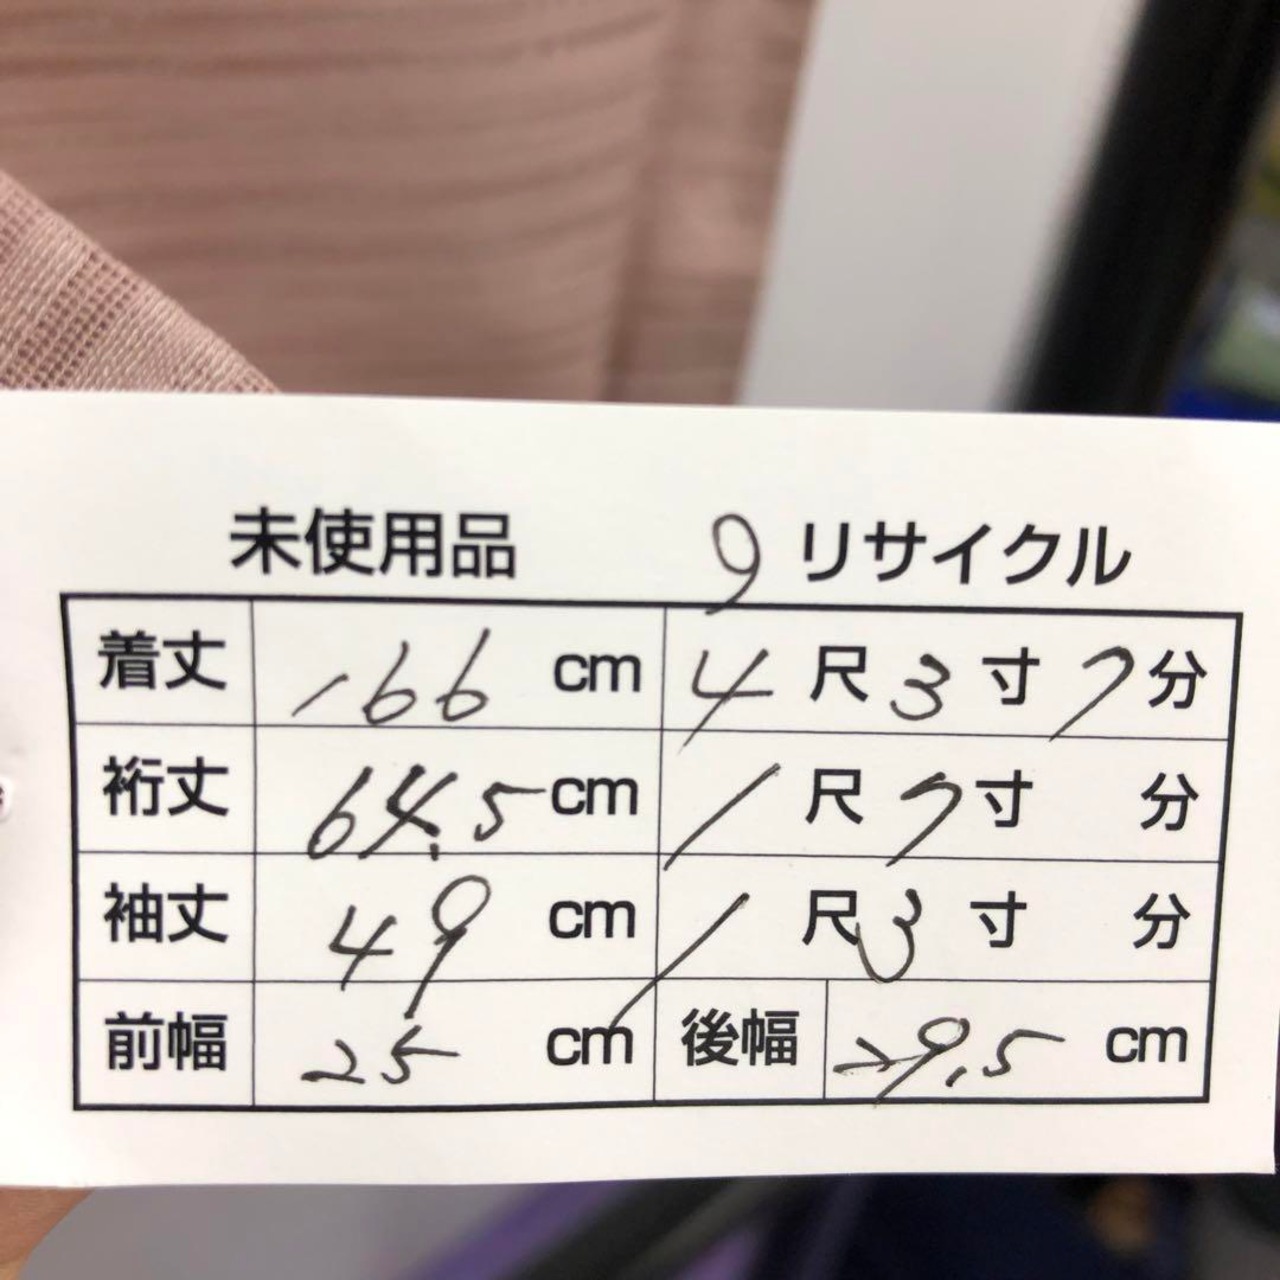 未使用品 9 リサイクル
着丈 166 cm 4 尺 3 寸 7 分
裄丈 64.5 cm 1 尺 7 寸 分
袖丈 49 cm 1 尺 3 寸 分
前幅 25 cm 後幅 29.5 cm